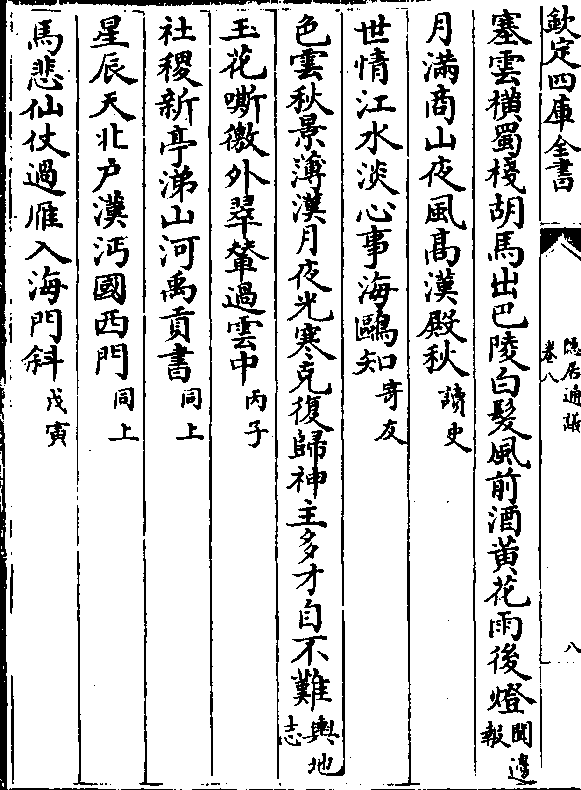 欽定四庫全書
隠居通議
卷八
八
塞雲橫蜀棧胡馬出巴陵白髮風前酒黄花雨後燈聞邊報
月滿商山夜風髙漢殿秋讀史
世情江水淡心事海鷗知寄友
色雲秋景薄漢月夜光寒克復歸神主多才自不難輿地志
玉花嘶徼外翠輦過雲中丙子
社稷新亭涕山河禹貢書同上
星辰天北户漢沔國西門同上
馬悲仙仗過雁入海門斜戊寅